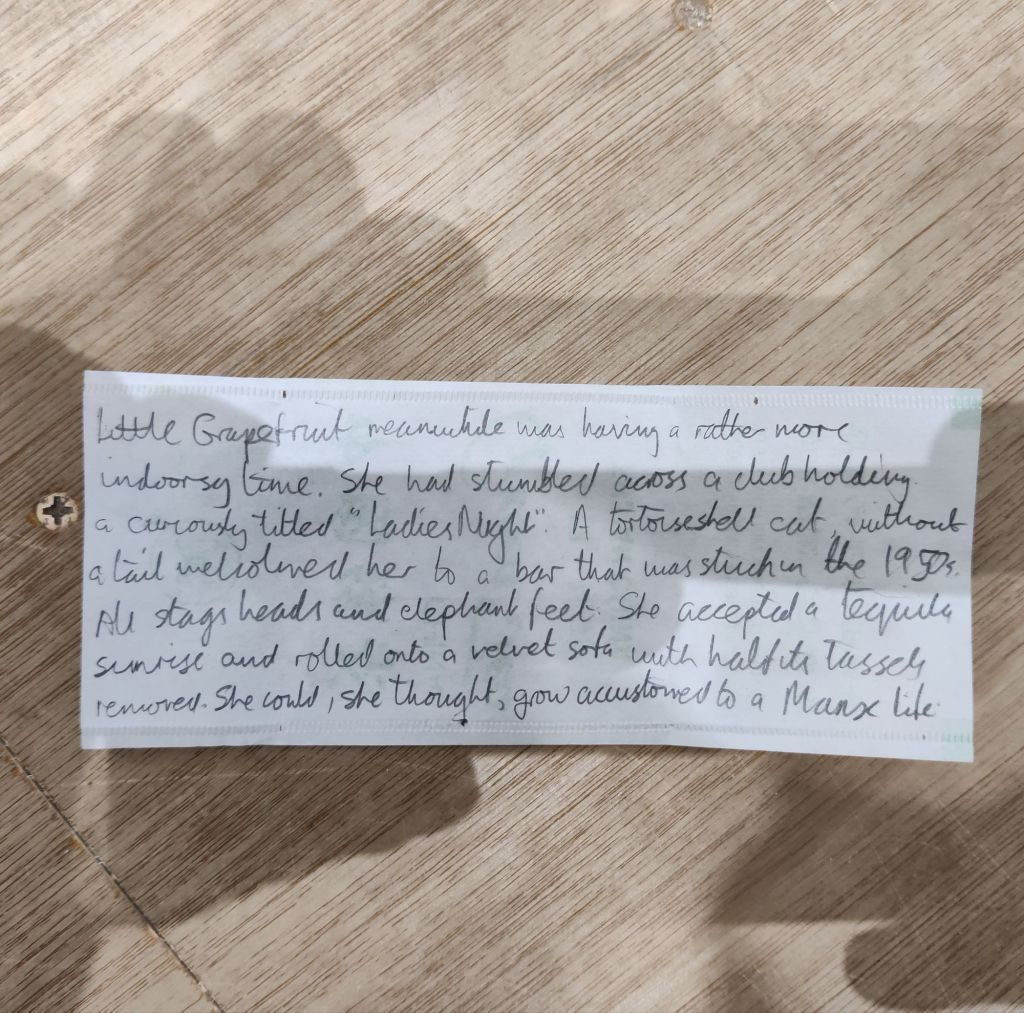 Little Grapefruit meanwhile was having a rather more
indoorsy time. She had stumbled across a club holding
a curiously titled "Ladies Night". A tortoiseshell cat, without
a tail welcomed her to a bar that was stuck in the 1950s.
All stags heads and elephant feet. She accepted a tequila
sunrise and rolled onto a velvet sofa with half its tassels
removed. She could, she thought, grow accustomed to a Manx life.